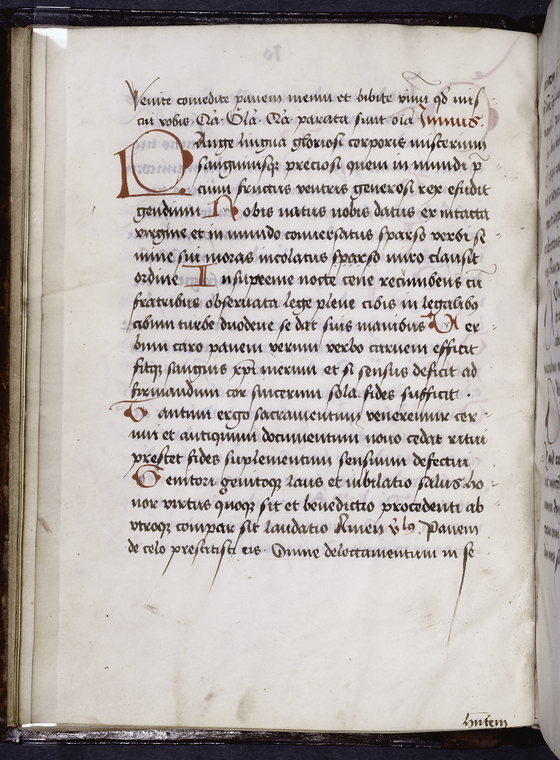 Venite comedite panem meum et bibite vinu qd mis
cui vobis Qa Gla Qa parata sunt oia Jmnus
Pange lingua gloriosi corporis misterium
sanguinisq preciosi quem in mundi p
cium fructus ventris generosi rex effudit
gencium Nobis natus nobis datus ex intacta
virgine et in mundo conversatus sparso verbi se
mine sui moras incolatus sparso miro clausit
ordine In supreme nocte cene recumbens cu
fratribus observata lege plene cibis in legalibq
cibum turbe duodene se dat suis manibus Ver
bum caro panem verum verbo carnem efficit
fitq sanguis xpi merum et si sensus deficit ad
firmandum cor sincerum sola fides sufficit
Tantum ergo sacramentum veneremur cer
nui et antiquum documentum novo cedat ritui
prestet fides suplementum sensuum defectui
Genitori genitoq laus et iubilatio salus ho
nor virtus quoq sit et benedictio procedenti ab
utroq compar sit laudatio Amen vs Panem
de celo prestitisti eis Omne delectamentum in se
hntem